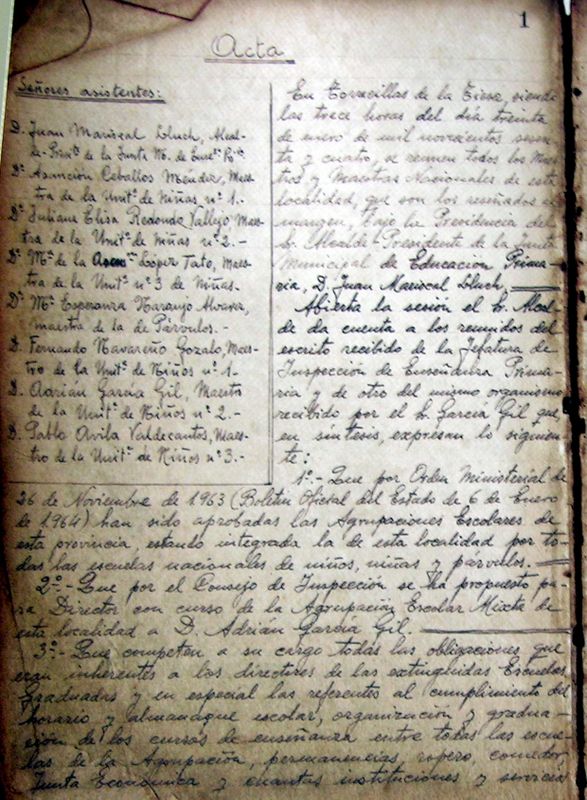 1
Acta
Señores asistentes:
D. Juan Mariscal Lluch, Alcal-
de-Presidte de la Junta M. de Enseñ. Pria.
Dª Asunción Ceballos Méndez, Maes-
tra de la Unitª de Niñas nº 1.-
Dª Juliana Elisa Redondo Vallejo Maes-
tra de la Unitª de Niñas nº 2.-
Dª Mª de la Asun López Tato, Maes-
tra de la Unitª nº 3 de Niñas.-
Dª Mª Esperanza Naranjo Alvarez,
maestra de la de Párvulos.-
D. Fernando Navareño Gozalo, Maes-
tro de la Unitª de Niños nº 1.-
D. Adrián García Gil, Maestro
de la Unitª de Niños nº 2.-
D. Pablo Avila Valdecantos, Maes-
tro de la Unitª de Niños nº 3.-
En Torrecillas de la Tiesa, siendo
las trece horas del día treinta
de enero de mil novecientos sesen-
ta y cuatro, se reunen todos los Maes-
tros y Maestras Nacionales de esta
localidad, que son los reseñados al
margen, bajo la Presidencia del
Sr. Alcalde-Presidente de la Junta
Municipal de Educación Prima-
ria, D. Juan Mariscal Lluch,
Abierta la sesión el Sr. Alcal-
de da cuenta a los reunidos del
escrito recibido de la Jefatura de
Inspección de Enseñanza Prima-
ria y de otro del mismo organismo
recibido por el Sr. García Gil que,
en síntesis, expresan lo siguien-
te:
1º.- Que por Orden Ministerial de
26 de Noviembre de 1963 (Boletín Oficial del Estado de 6 de Enero
de 1964) han sido aprobadas las Agrupaciones Escolares de
esta provincia, estando integrada la de esta localidad por to-
das las escuelas nacionales de niños, niñas y párvulos.
2º.- Que por el Consejo de Inspección se ha propuesto pa-
ra Director con curso de la Agrupación Escolar Mixta de
esta localidad a D. Adrián García Gil.
3º.- Que competen a su cargo todas las obligaciones que
eran inherentes a los directores de las extinguidas Escuelas
Graduadas y en especial las referentes al cumplimiento del
horario y almanaque escolar, organización y gradua-
ción de los cursos de enseñanza entre todas las escue-
las de la Agrupación, permanencias, ropero, comedor,
Junta Económica y cuantas instituciones y servicios